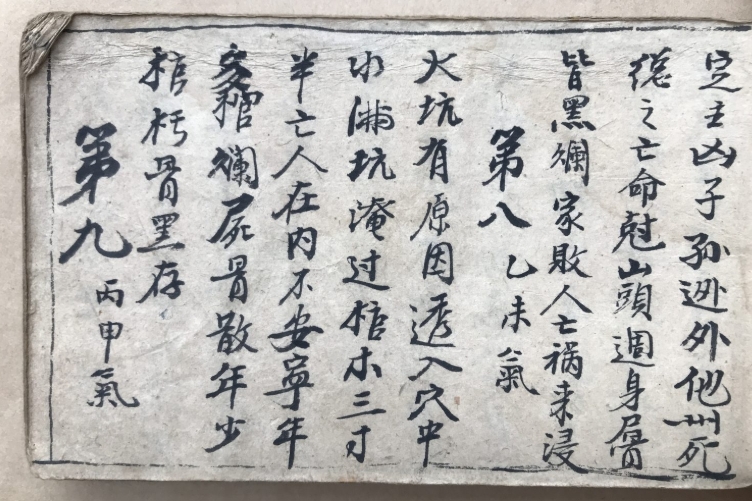 定主凶子孙逊外他州死
總之亡命尅山頭週身屑
皆黑爛家敗人亡祸来浸
第八 乙未氣
火坑有原因透入穴中
水滿坑淹过棺木三寸
半亡人在内不安寧年
爛屍骨散年少
棺朽骨黑存
第九 丙申氣